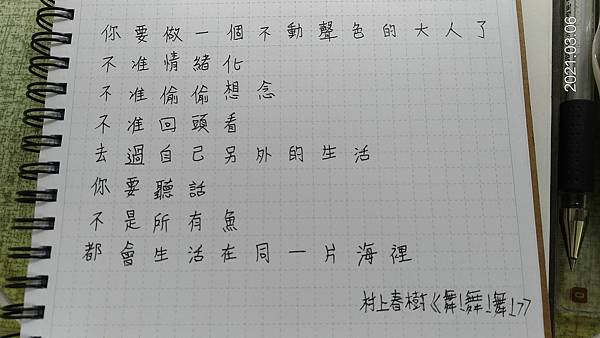 你要做一個不動聲色的大人了
不准情緒化
不准偷偷想念
不准回頭看
去過自己另外的生活
你要聽話
不是所有魚
都會生活在同一片海裡
村上春樹《舞!舞!舞!》
2021.03.06